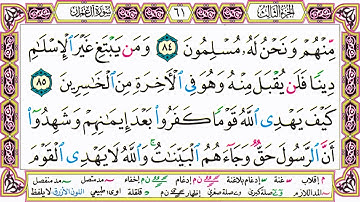 الجزء الثالث ٦١ سورة آل عمران
مِّنْهُمْ وَنَحْنُ لَهُۥ مُسْلِمُونَ ٨٤ وَمَن يَبْتَغِ غَيْرَ الْإِسْلَٰمِ
دِينًا فَلَن يُقْبَلَ مِنْهُ وَهُوَ فِى الْآخِرَةِ مِنَ الْخَٰسِرِينَ ٨٥
كَيْفَ يَهْدِى اللَّهُ قَوْمًا كَفَرُوا۟ بَعْدَ إِيمَٰنِهِمْ وَشَهِدُوٓا۟
أَنَّ الرَّسُولَ حَقٌّ وَجَآءَهُمُ الْبَيِّنَٰتُ ۚ وَاللَّهُ لَا يَهْدِى الْقَوْمَ